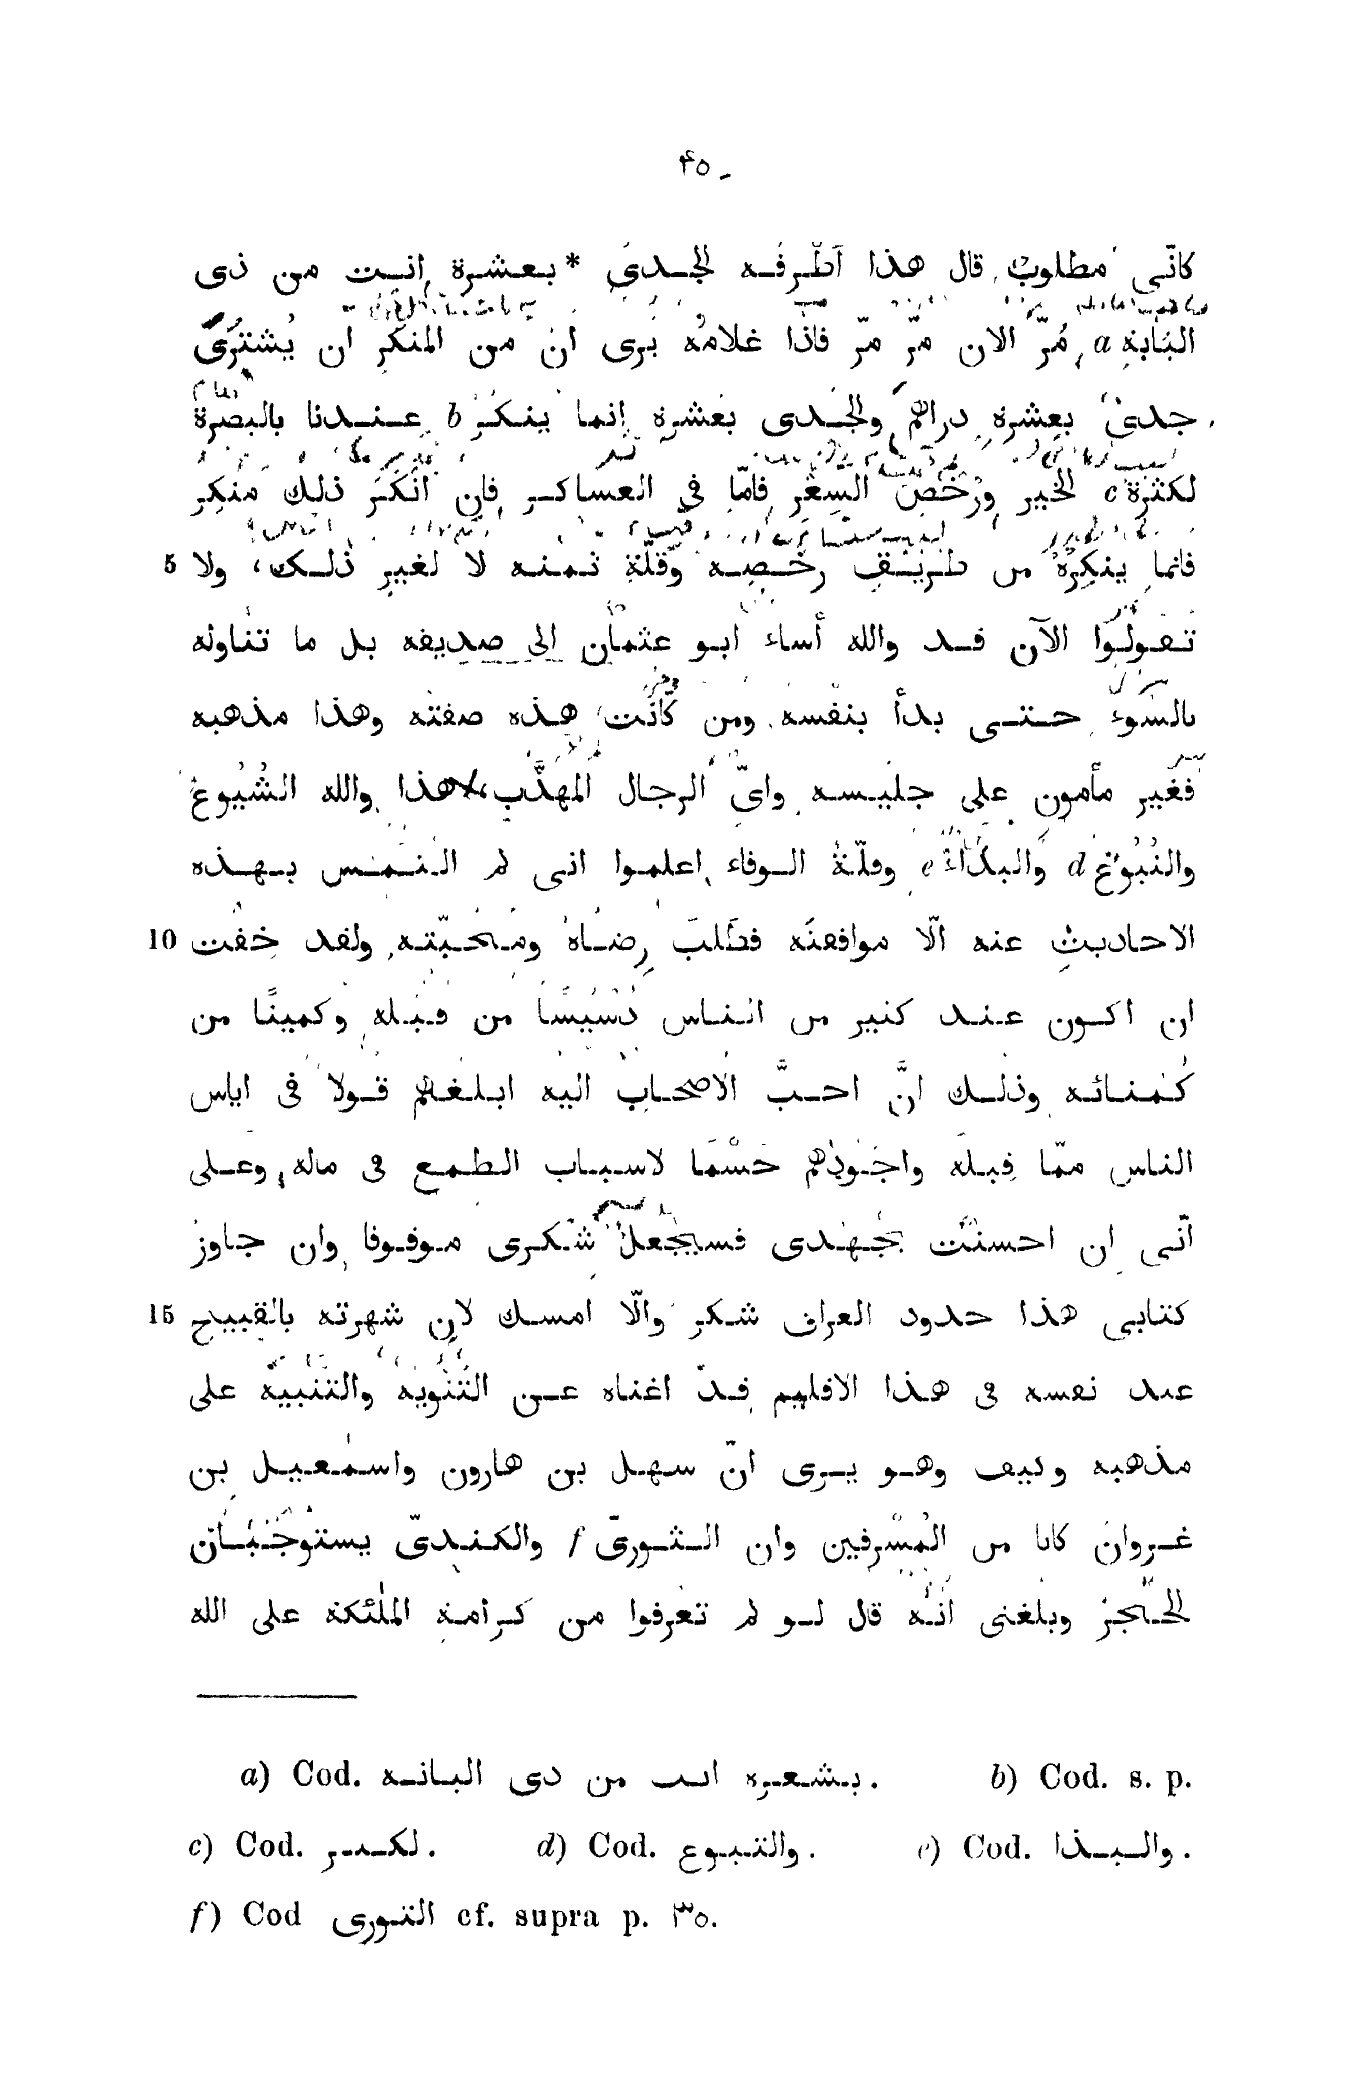 ۴٥
كانّى مطلوب قال هذا أطرفه الجدى * بعشرة انت من ذى
البابة a مُرّ الان مرّ مرّ فاذا غلامه يرى ان من المنكر ان يُشترى
جدى بعشرة دراهم والجدى بعشرة انما ينكر b عندنا بالبصرة
لكثرة c الخير ورخص السعر فامّا فى العساكر فان انكر ذلك منكر
5 فانما ينكره من طريق رخصه وقلّة ثمنه لا لغير ذلك، ولا
تقولوا الآن قد والله أساء ابو عثمان الى صديقه بل ما تناوله
بالسوء حتى بدأ بنفسه ومن كانت هذه صفته وهذا مذهبه
فغير مأمون على جليسه واىّ الرجال المهذَّب هذا والله الشُيُوع
والتُبُوع d والبذاء e وقلّة الوفاء اعلموا انى لم التمس بهذه
10 الاحاديث عنه الّا موافقته وطلب رضاه ومحبّته ولقد خفت
ان اكون عند كثير من الناس دسيسًا من قبله وكمينًا من
كمنائه وذلك انّ احبّ الاصحاب اليه ابلغهم قولا فى اياس
الناس ممّا قبله واجودهم حسْمًا لاسباب الطمع فى ماله وعلى
انّى ان احسنت بجهدى فسيجعل شكرى موقوفا وان جاوز
15 كتابى هذا حدود العراق شكر والّا امسك لان شهرته بالقبيح
عند نفسه فى هذا الاقليم قد اغناه عن التنويه والتنبيه على
مذهبه وكيف وهو يرى انّ سهل بن هارون واسمعيل بن
غزوان كانا من المُسْرفين وان الثورىّ f والكندىّ يستوجبان
الحجر وبلغنى أنّه قال لو لم تعرفوا من كرامة الملئكة على الله
a) Cod. بشعره اٮٮ من دى البانه. b) Cod. s. p.
c) Cod. لكٮىر. d) Cod. والتبوع. e) Cod. والبذا.
f) Cod التورى cf. supra p. ۳٥.